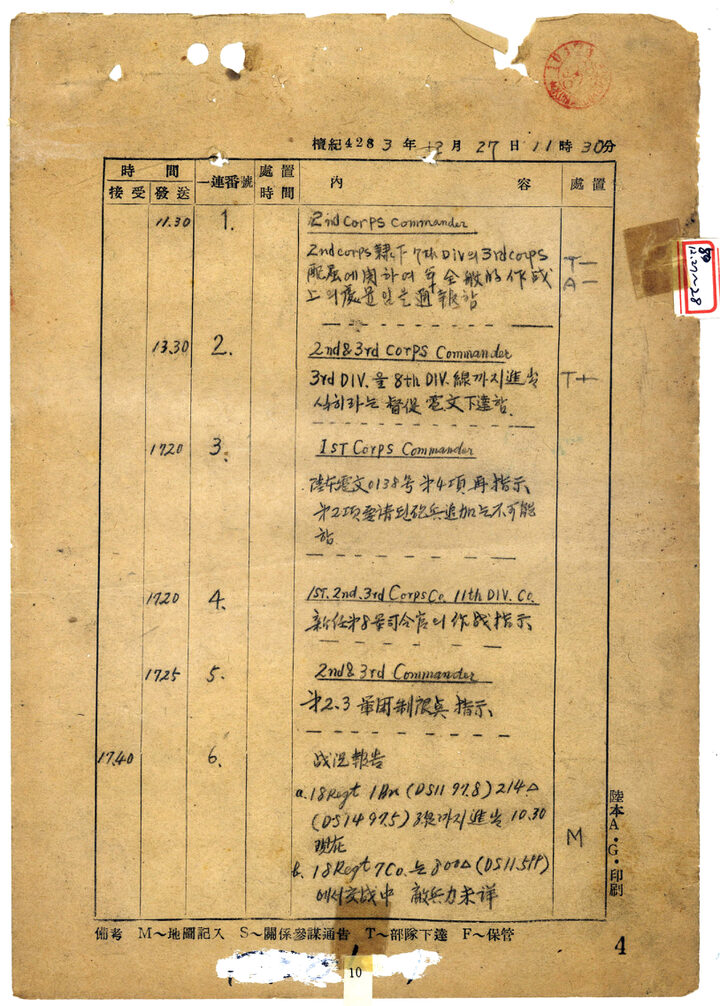 檀紀4283年12月27日11時30分
時間 一連番號 處置時間 內容 處置
接受 發送
11.30 1. 2nd Corps Commander
2nd corps 隸下 7th Div의 3rd corps
配屬에 関하여 全般的 作战
上의 임을 通報함
T—
A—
13.30 2. 2nd & 3rd Corps Commander
3rd DIV.을 8th DIV. 線까지 進出
시히라는 督促 電文下達함.
T+
1720 3. 1ST Corps Commander
陸本電文0138号 第4項 再指示
第2項 要請된 砲兵追加는 不可能
함
1720 4. 1ST. 2nd. 3rd Corps Co. 11th DIV. Co.
新任第8軍司令官의 作战指示
1725 5. 2nd & 3rd Commander
第2.3 軍団 指示
17.40 6. 战況報告
a. 18Regt 1Bn (DS11 97.8) 214△
(DS14 97.5) 線까지 進出 10.30
現在
M
b. 18Regt 7Co.는 800△ (DS11.599)
에서 交战中 敵兵力未詳
陸本A・G・印刷
備考 M～地圖記入 S～關係參謀通告 T～部隊下達 F～保管
4
10
12.27～28